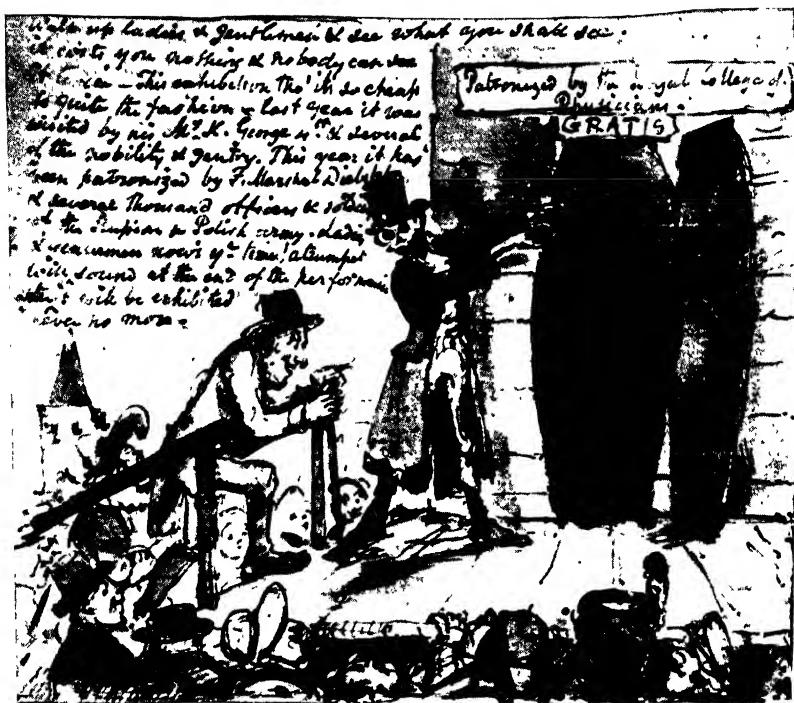 Walk up ladies & gentlemen & see what you shall see.
it costs you nothing & nobody can see
This exhibition tho' its so cheap
is quite the fashion - last year it was
visited by his K. George & several
of the nobility & gentry. This year it has
been patronized by F. Marshal
& several thousand officers &
of the & Polish army - ladies
& now's yr time! a trumpet
will sound at the end of the performance
will be exhibited
never no more -
Patronized by the Royal College of
Physicians.
GRATIS